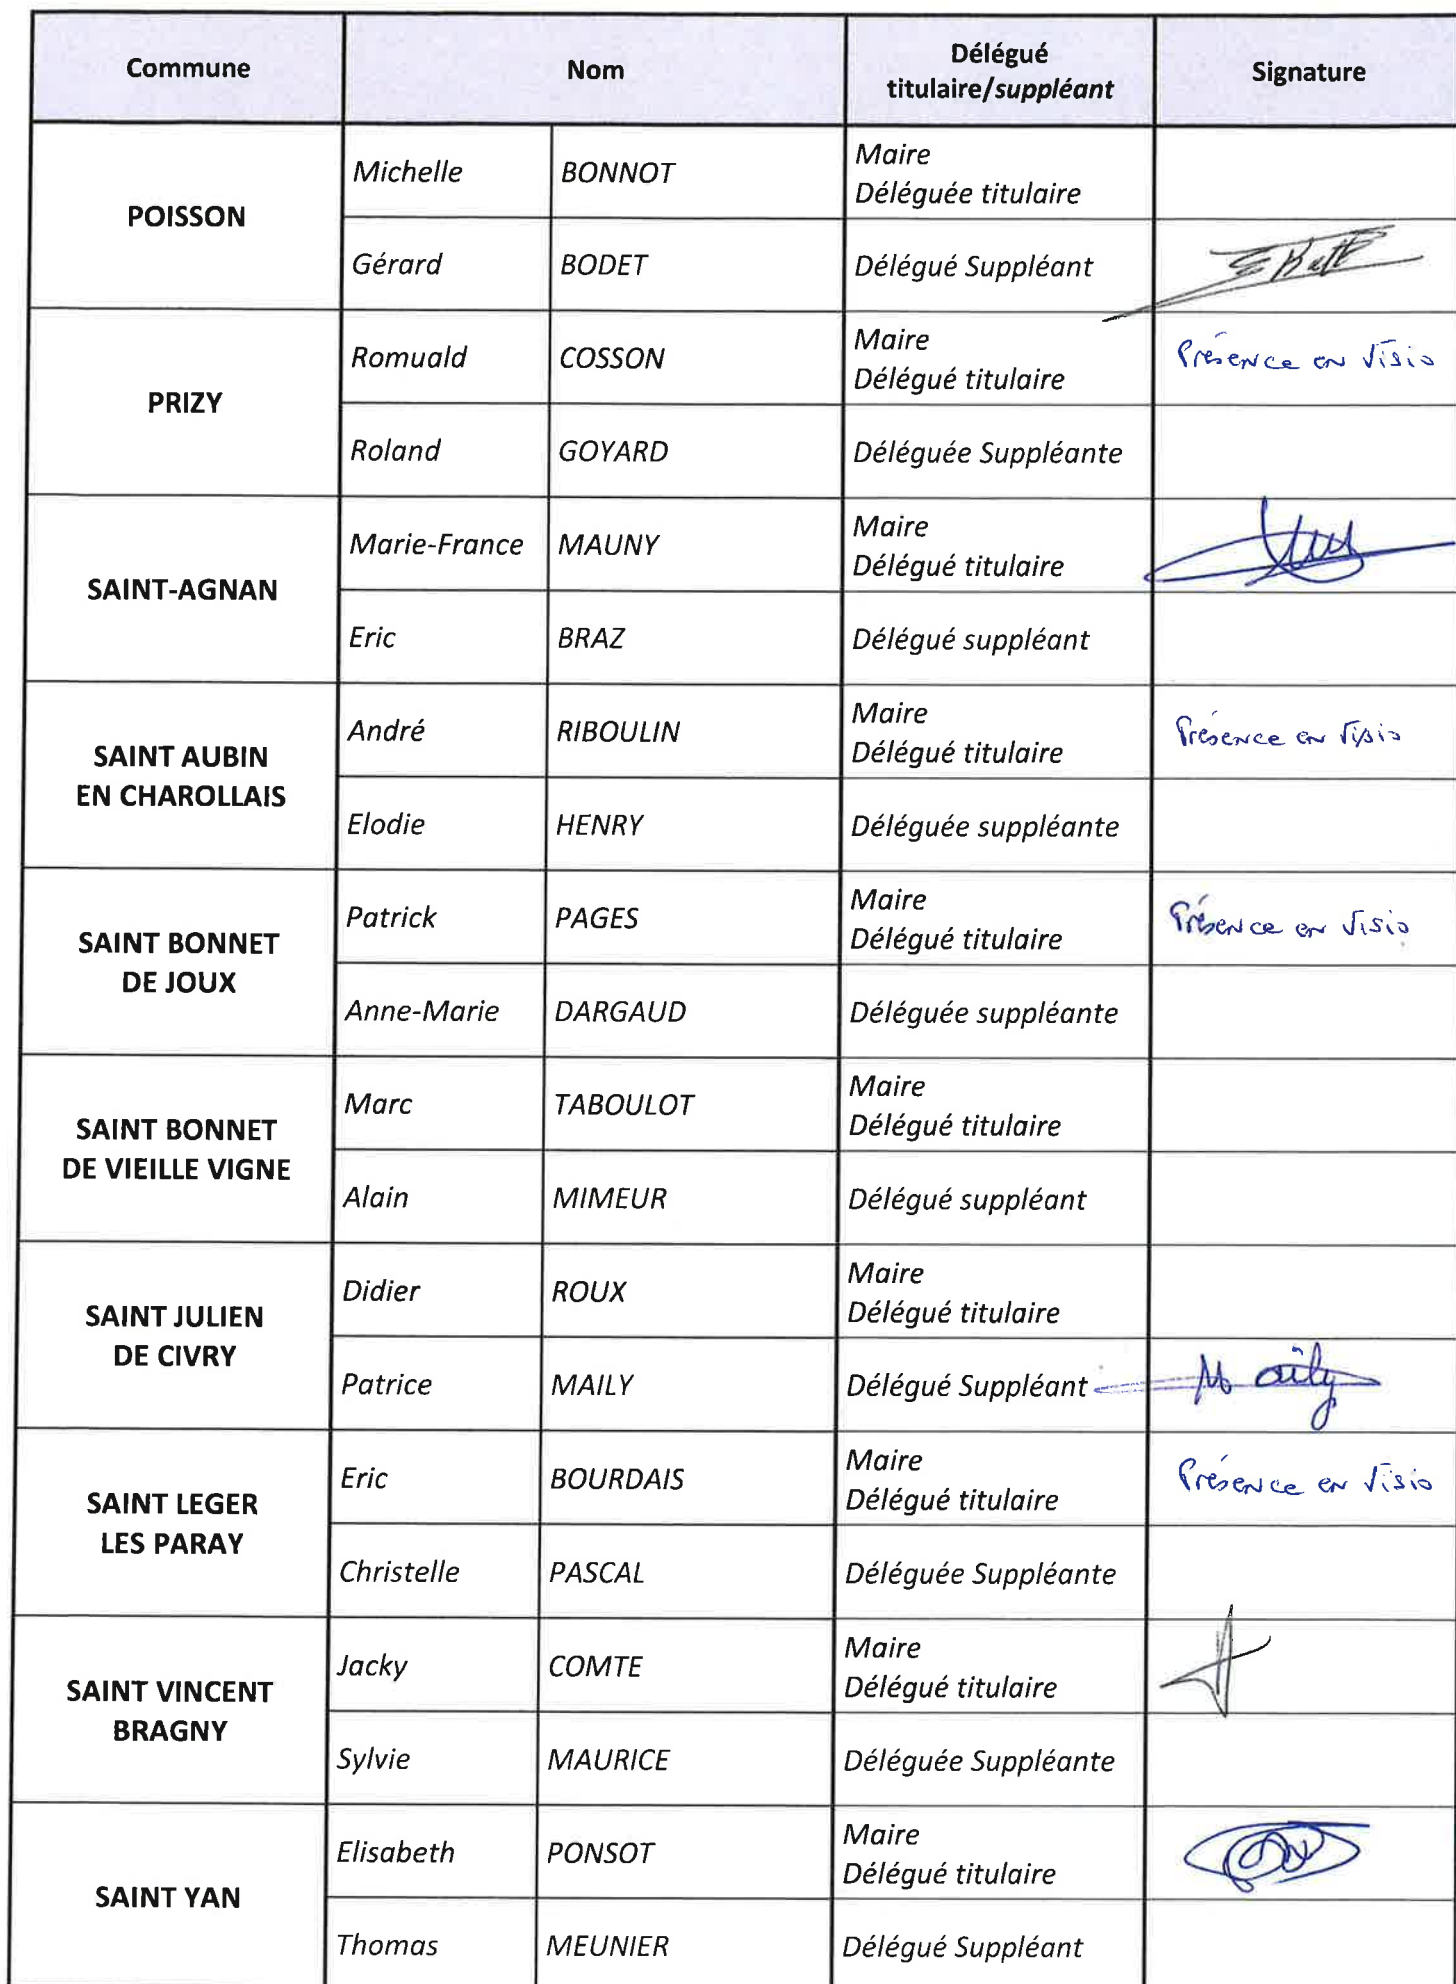 Commune Nom Délégué titulaire/suppléant Signature
POISSON
Michelle BONNOT Maire
Déléguée titulaire
Gérard BODET Délégué Suppléant
PRIZY
Romuald COSSON Maire
Délégué titulaire Présence en Visio
Roland GOYARD Déléguée Suppléante
SAINT-AGNAN
Marie-France MAUNY Maire
Délégué titulaire
Eric BRAZ Délégué suppléant
SAINT AUBIN
EN CHAROLLAIS
André RIBOULIN Maire
Délégué titulaire Présence en Visio
Elodie HENRY Déléguée suppléante
SAINT BONNET
DE JOUX
Patrick PAGES Maire
Délégué titulaire Présence en Visio
Anne-Marie DARGAUD Déléguée suppléante
SAINT BONNET
DE VIEILLE VIGNE
Marc TABOULOT Maire
Délégué titulaire
Alain MIMEUR Délégué suppléant
SAINT JULIEN
DE CIVRY
Didier ROUX Maire
Délégué titulaire
Patrice MAILY Délégué Suppléant Maily
SAINT LEGER
LES PARAY
Eric BOURDAIS Maire
Délégué titulaire Présence en Visio
Christelle PASCAL Déléguée Suppléante
SAINT VINCENT
BRAGNY
Jacky COMTE Maire
Délégué titulaire
Sylvie MAURICE Déléguée Suppléante
SAINT YAN
Elisabeth PONSOT Maire
Délégué titulaire
Thomas MEUNIER Délégué Suppléant